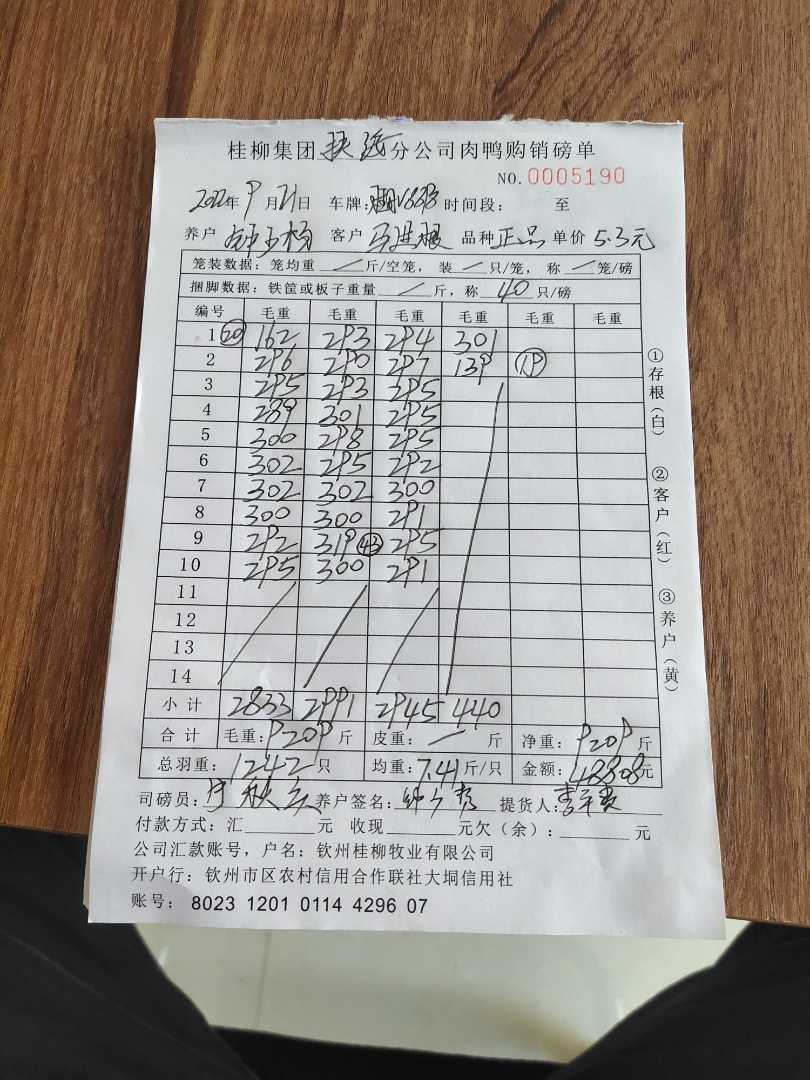 桂柳集团扶绥分公司肉鸭购销磅单
NO.0005190
2022年9月21日 车牌: 时间段: 至
养户 客户 马进根 品种 正品 单价 5.3元
笼装数据: 笼均重 / 斤/空笼, 装 / 只/笼, 称 / 笼/磅
捆脚数据: 铁筐或板子重量 / 斤, 称 40 只/磅
编号 毛重 毛重 毛重 毛重 毛重 毛重
1 ⑳ 162 293 294 301
2 296 290 297 139 ⑲
3 295 293 295
4 289 301 295
5 300 298 295
6 302 295 292
7 302 302 300
8 300 300 291
9 292 319 ㊸ 295
10 295 300 291
11
12
13
14
小计 2833 2991 2945 440
合计 毛重: 9209 斤 皮重: / 斤 净重: 9209 斤
总羽重: 1242 只 均重: 7.41 斤/只 金额: 48808元
司磅员: 养户签名: 提货人:
付款方式: 汇______元 收现______元欠(余): ______元
公司汇款账号, 户名: 钦州桂柳牧业有限公司
开户行: 钦州市区农村信用合作联社大垌信用社
账号: 8023 1201 0114 4296 07
①存根(白)
②客户(红)
③养户(黄)